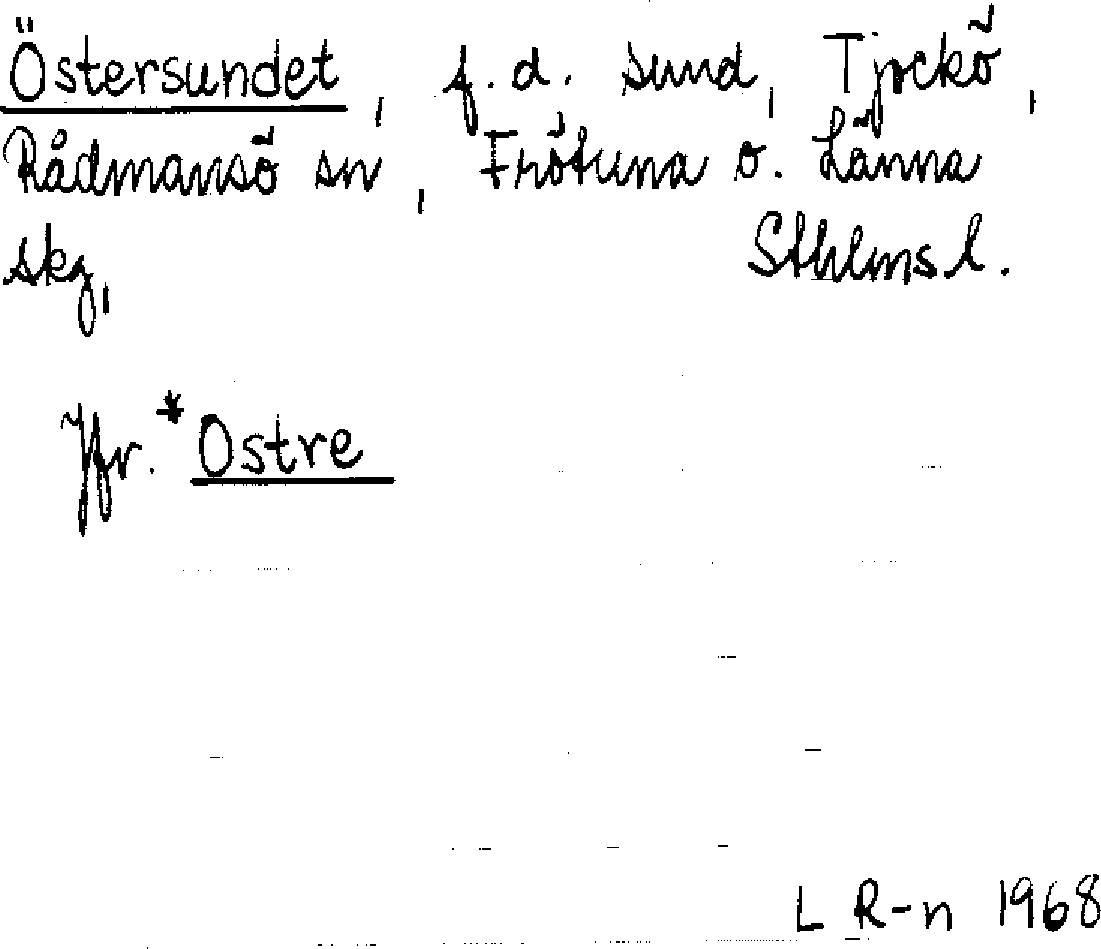 Östersundet, f.d. sund, Tjockö,
Rådmansö sn, Frötuna o. Länna
skg, Sthlms l.
Jfr. *Ostre
L R-n 1968